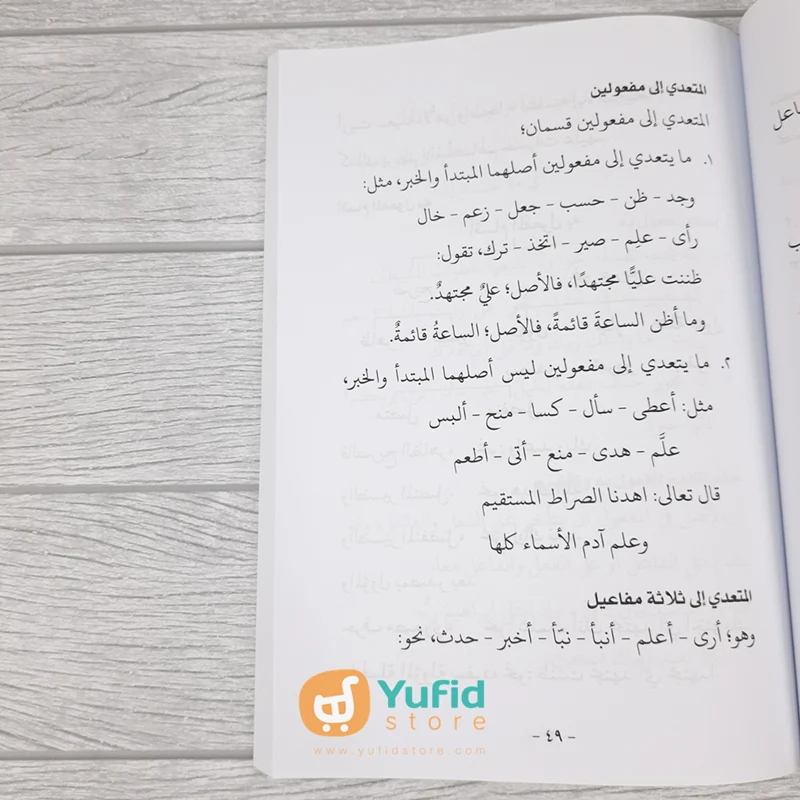 المتعدي إلى مفعولين
المتعدي إلى مفعولين قسمان؛
١. ما يتعدي إلى مفعولين أصلهما المبتدأ والخبر، مثل:
وجد - ظن - حسب - جعل - زعم - خال
رأى - علِم - صير - اتخذ - ترك، تقول:
ظننت عليًّا مجتهدًا، فالأصل؛ عليٌ مجتهدٌ.
وما أظن الساعةَ قائمةً، فالأصل؛ الساعةُ قائمةٌ.
٢. ما يتعدي إلى مفعولين ليس أصلهما المبتدأ والخبر،
مثل: أعطى - سأل - كسا - منح - ألبس
علَّم - هدى - منع - أتى - أطعم
قال تعالى: اهدنا الصراط المستقيم
وعلم آدم الأسماء كلها
المتعدي إلى ثلاثة مفاعيل
وهو؛ أرى - أعلم - أنبأ - نبّأ - أخبر - حدث، نحو:
- ٤٩ -
Yufid
store
www.yufidstore.com